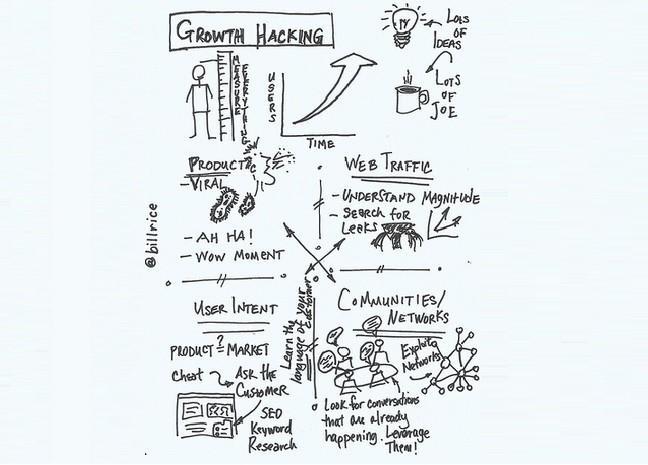 GROWTH HACKING
LOTS
OF
IDEAS
MEASURE
EVERYTHING
USERS
TIME
LOTS
OF
JOE
PRODUCT
- VIRAL
- AH HA!
- WOW MOMENT
WEB TRAFFIC
- UNDERSTAND MAGNITUDE
- SEARCH FOR
LEAKS
@billrice
USER INTENT
PRODUCT ?= MARKET
Cheat
ASK THE
CUSTOMER
SEO
Keyword
Research
Learn the
language of your
customer
COMMUNITIES/
NETWORKS
Exploit
Networks
Look for conversations
that are already
happening. Leverage
Them!